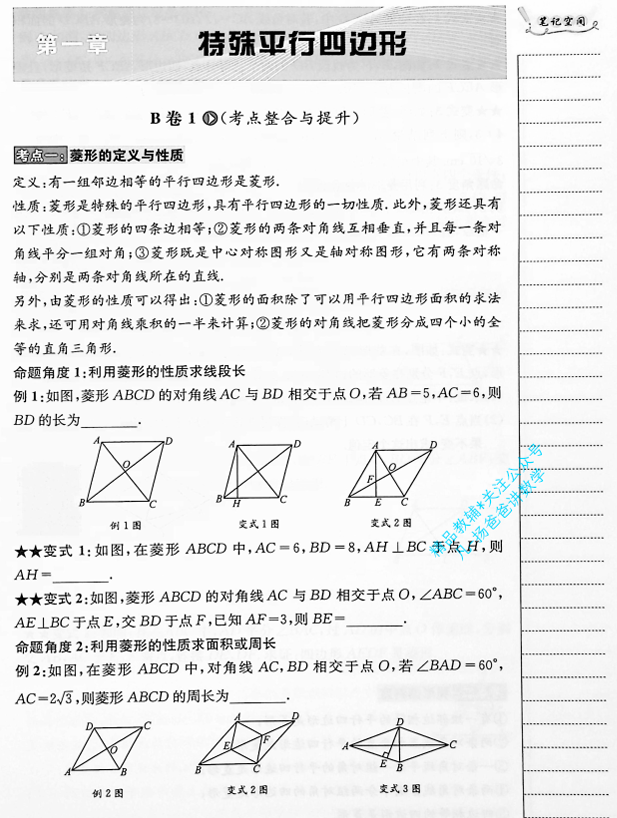 第一章
特殊平行四边形
笔记空间
B卷1(考点整合与提升)
考点一:菱形的定义与性质
定义:有一组邻边相等的平行四边形是菱形.
性质:菱形是特殊的平行四边形,具有平行四边形的一切性质.此外,菱形还具有
以下性质:①菱形的四条边相等;②菱形的两条对角线互相垂直,并且每一条对
角线平分一组对角;③菱形既是中心对称图形又是轴对称图形,它有两条对称
轴,分别是两条对角线所在的直线.
另外,由菱形的性质可以得出:①菱形的面积除了可以用平行四边形面积的求法
来求,还可用对角线乘积的一半来计算;②菱形的对角线把菱形分成四个小的全
等的直角三角形.
命题角度1:利用菱形的性质求线段长
例1:如图,菱形ABCD的对角线AC与BD相交于点O,若AB=5,AC=6,则
BD的长为______.
A D O B C
A D B H C
A D O F B E C
例1图 变式1图 变式2图
★★变式1:如图,在菱形ABCD中,AC=6,BD=8,AH⊥BC于点H,则
AH=______.
★★变式2:如图,菱形ABCD的对角线AC与BD相交于点O,∠ABC=60°,
AE⊥BC于点E,交BD于点F,已知AF=3,则BE=______.
命题角度2:利用菱形的性质求面积或周长
例2:如图,在菱形ABCD中,对角线AC,BD相交于点O,若∠BAD=60°,
AC=2√3,则菱形ABCD的周长为______.
D C O A B
A D E F B C
D A C E B
例2图 变式2图 变式3图
精品教辅*关注公众号
杨爸爸讲数学